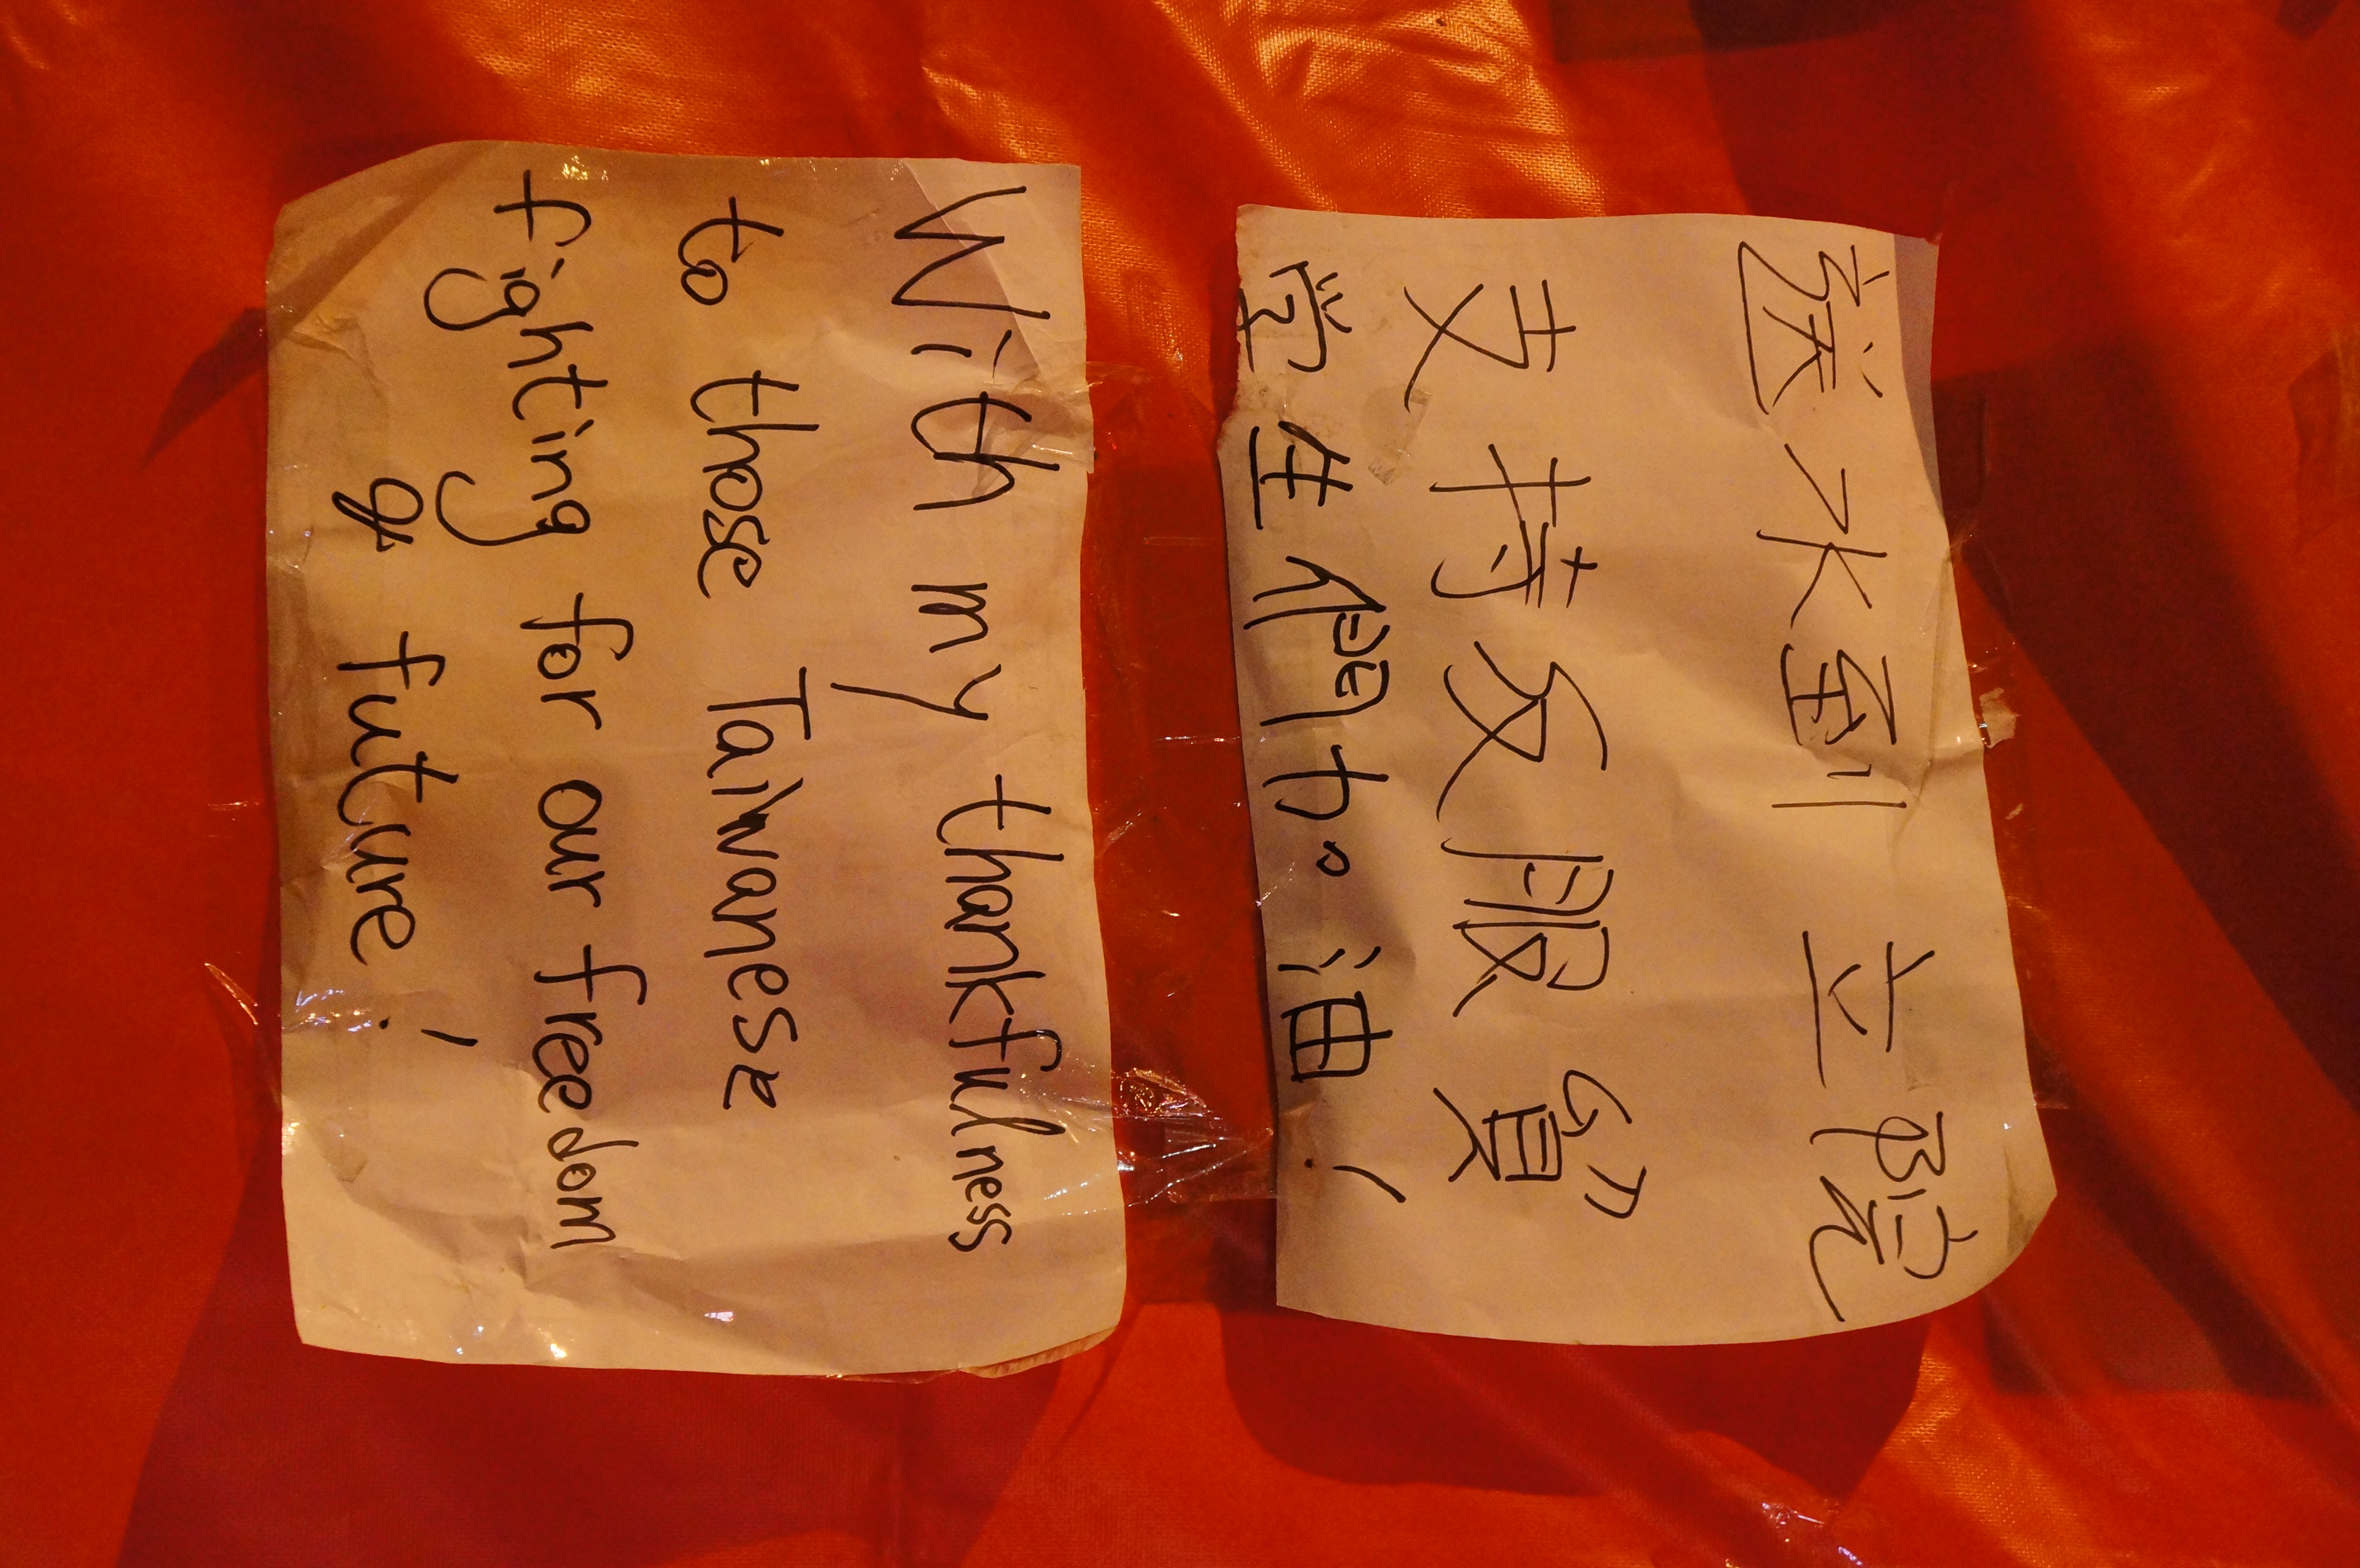 送水到 立院
支持反服貿
学生們加油!
With my thankfulness
to those Taiwanese
fighting for our freedom
& future!